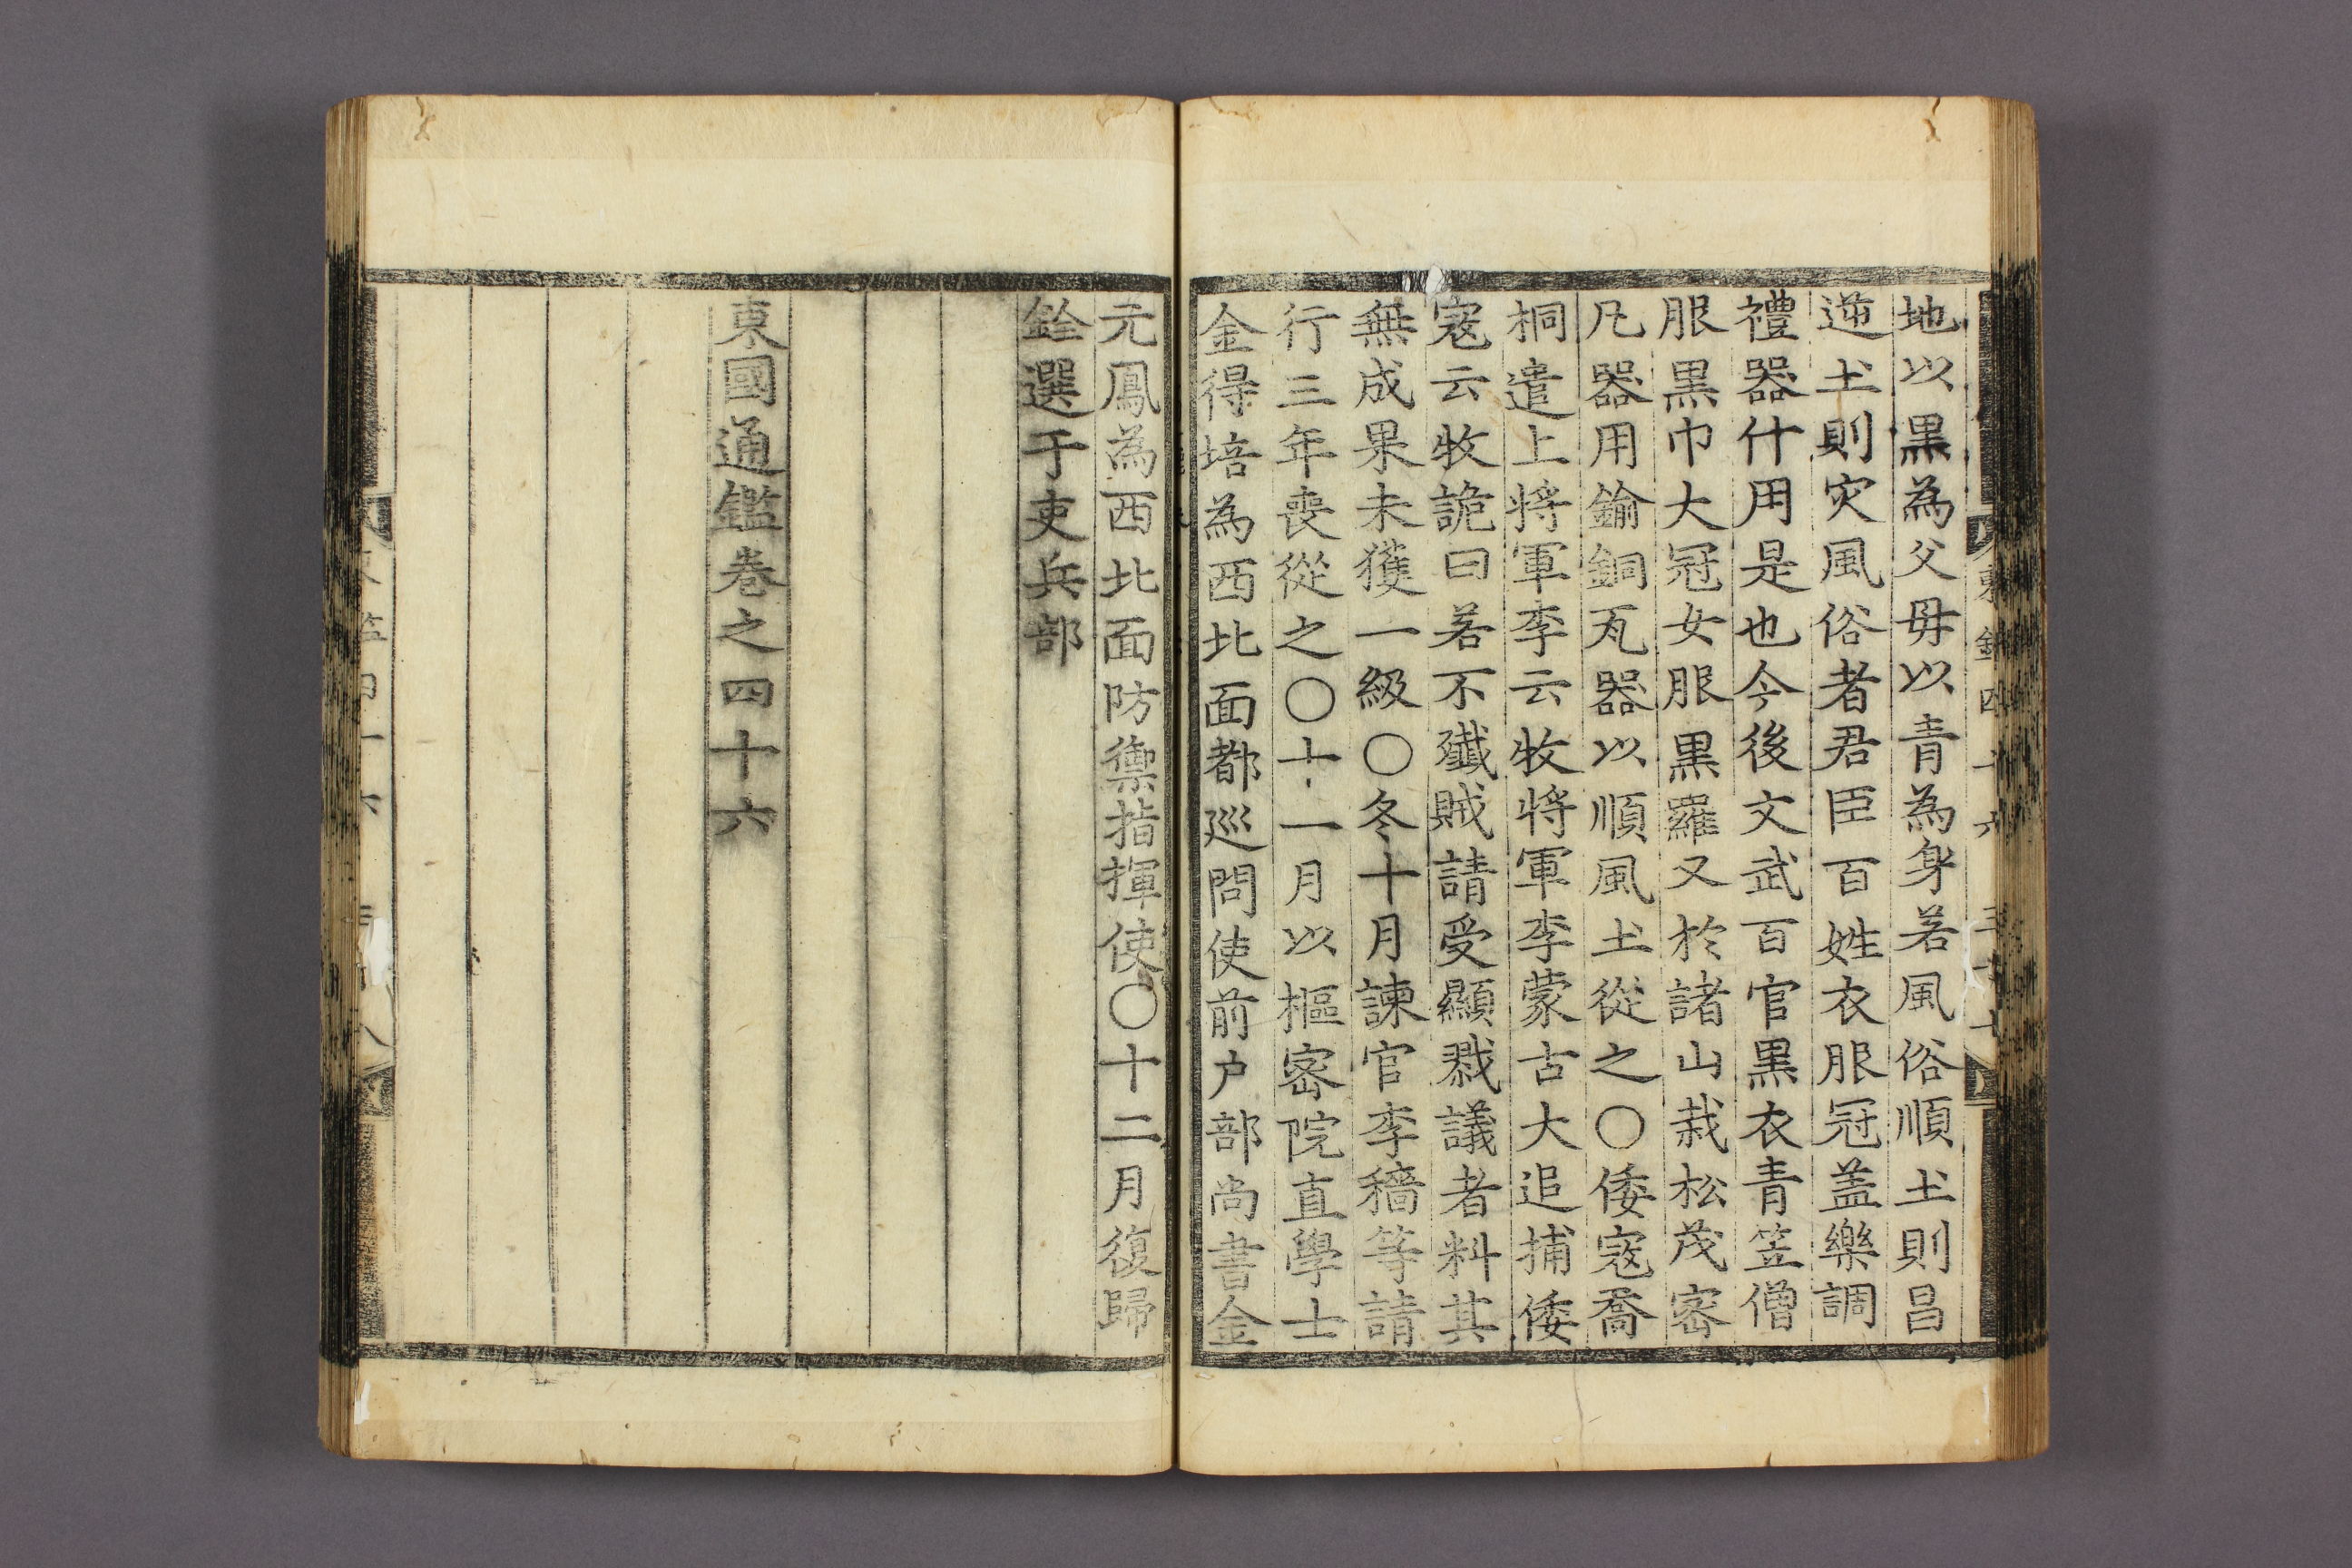 地以黒為父母以青為身若風俗順土則昌
逆土則灾風俗者君臣百姓衣服冠盖樂調
禮器什用是也今後文武百官黒衣青笠僧
服黒巾大冠女服黒羅又於諸山栽松茂密
凡器用鍮銅瓦器以順風土從之○倭寇喬
桐遣上将軍李云牧将軍李蒙古大追捕倭
寇云牧詭曰若不殲賊請受顯戮議者料其
無成果未獲一級○冬十月諫官李穡等請
行三年喪從之○十一月以樞密院直學士
金得培為西北面都巡問使前户部尚書金
元鳳為西北面防禦指揮使○十二月復歸
銓選于吏兵部
東國通鑑巻之四十六